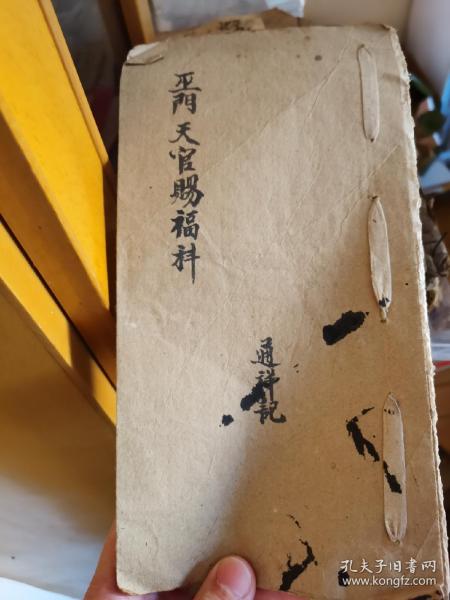 巫門天官賜福科
通祥記
孔夫子旧书网
www.kongfz.com